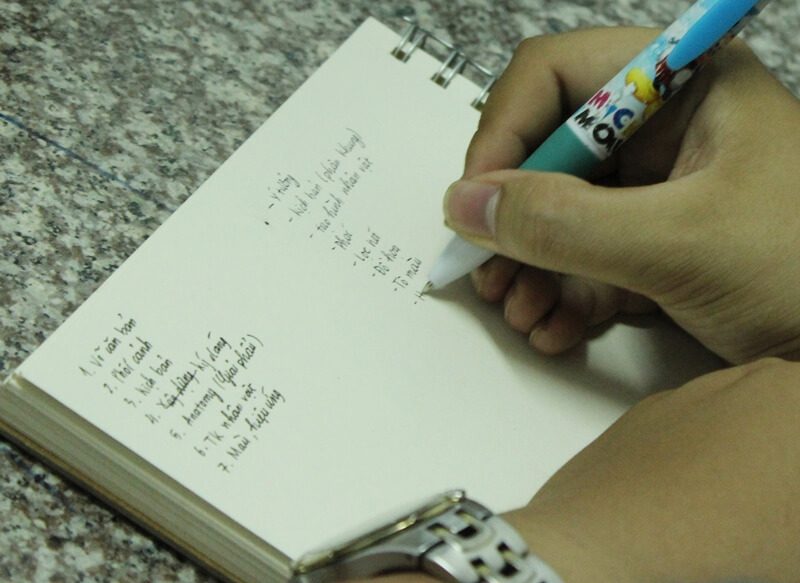 - Ý tưởng
- Kịch bản (phân khung)
- Tạo hình nhân vật
- Phác
- Đi nét
- Đồ họa
- Tô màu
- H
1. Vẽ căn bản
2. Phối cảnh
3. Kịch bản
4. Ký dáng
5. Anatomy (Giải phẫu)
6. TK nhân vật
7. Màu, hiệu ứng
MIC
MOU